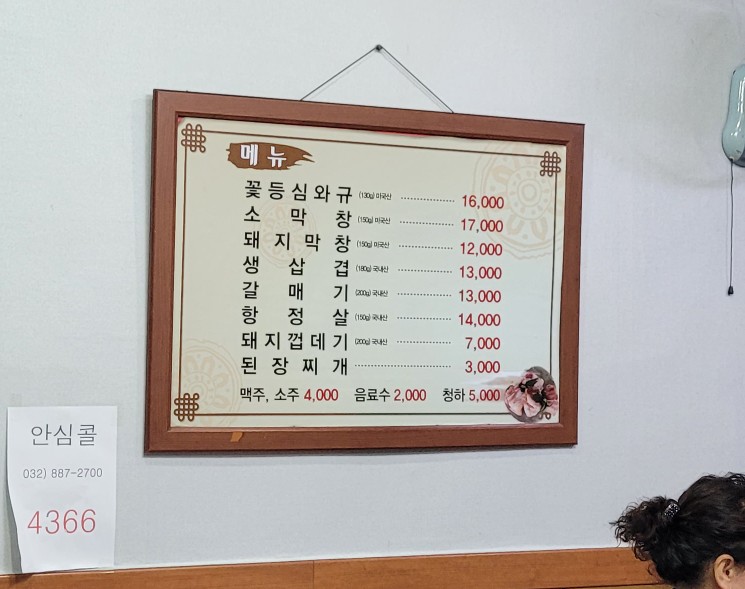 메뉴
꽃등심와규 (130g) 미국산 16,000
소막창 (150g) 미국산 17,000
돼지막창 (150g) 미국산 12,000
생삼겹 (180g) 국내산 13,000
갈매기 (200g) 국내산 13,000
항정살 (150g) 국내산 14,000
돼지껍데기 (200g) 국내산 7,000
된장찌개 3,000
맥주, 소주 4,000 음료수 2,000 청하 5,000
안심콜
032) 887-2700
4366